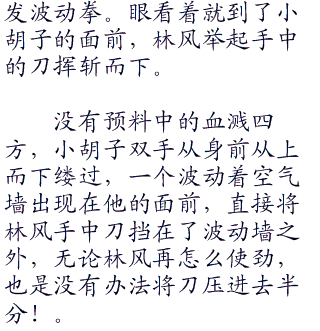 发波动拳。眼看着就到了小
胡子的面前，林风举起手中
的刀挥斩而下。
没有预料中的血溅四
方，小胡子双手从身前从上
而下缕过，一个波动着空气
墙出现在他的面前，直接将
林风手中刀挡在了波动墙之
外，无论林风再怎么使劲，
也是没有办法将刀压进去半
分！。